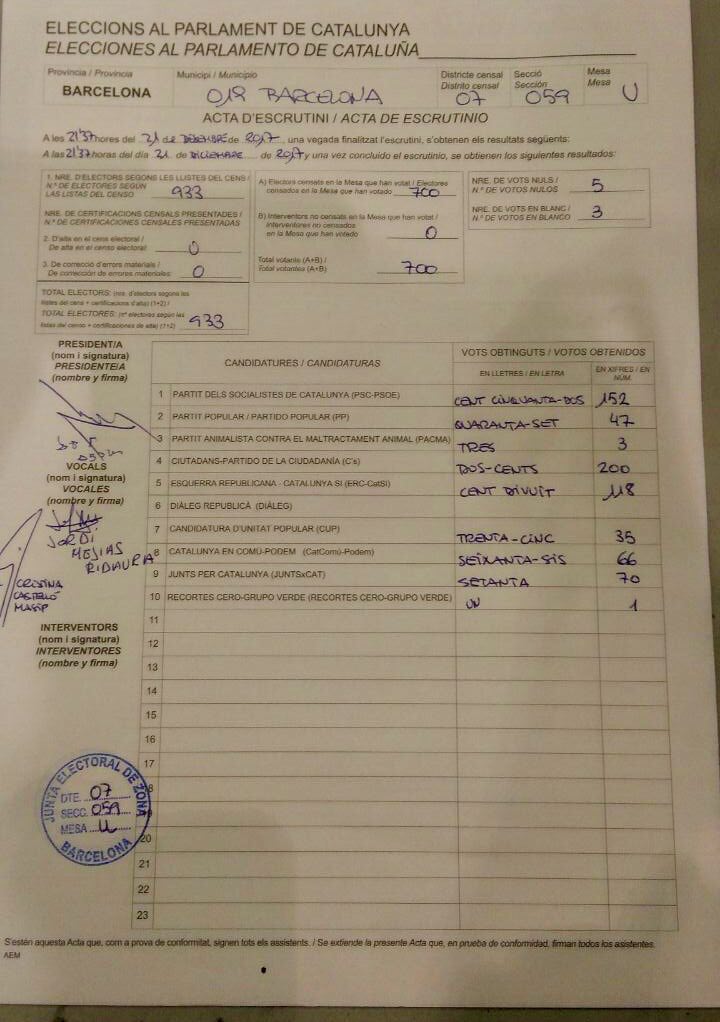 ELECCIONS AL PARLAMENT DE CATALUNYA
ELECCIONES AL PARLAMENTO DE CATALUÑA
Provincia / Provincia
BARCELONA
Municipi / Municipio
019 BARCELONA
Districte censal
Distrito censal
07
Secció
Sección
059
Mesa
Mesa
U
ACTA D'ESCRUTINI / ACTA DE ESCRUTINIO
A les 21'37 hores del 21 de DESEMBRE de 2017, una vegada finalitzat l'escrutini, s'obtenen els resultats següents:
A las 21'37 horas del día 21 de DICIEMBRE de 2017 y una vez concluido el escrutinio, se obtienen los siguientes resultados:
1. NRE. D'ELECTORS SEGONS LES LLISTES DEL CENS /
N.º DE ELECTORES SEGÚN
LAS LISTAS DEL CENSO 933
NRE. DE CERTIFICACIONS CENSALS PRESENTADES /
N.º DE CERTIFICACIONES CENSALES PRESENTADAS
2. D'alta en el cens electoral /
De alta en el censo electoral: 0
3. De correcció d'errors materials /
De corrección de errores materiales: 0
TOTAL ELECTORS: (nre. d'electors segons les
llistes del cens + certificacions d'alta) (1+2) /
TOTAL ELECTORES: (nº electores según las
listas del censo + certificaciones de alta) (1+2) 933
A) Electors censats en la Mesa que han votat / Electores
censados en la Mesa que han votado 700
B) Interventors no censats en la Mesa que han votat /
Interventores no censados
en la Mesa que han votado 0
Total votants (A+B) /
Total votantes (A+B) 700
NRE. DE VOTS NULS /
N.º DE VOTOS NULOS 5
NRE. DE VOTS EN BLANC /
N.º DE VOTOS EN BLANCO 3
PRESIDENT/A
(nom i signatura)
PRESIDENTE/A
(nombre y firma)
VOCALS
(nom i signatura)
VOCALES
(nombre y firma)
JORDI
MESIAS
RIDAURA
CRISTINA
CASTELLÓ
MASIP
INTERVENTORS
(nom i signatura)
INTERVENTORES
(nombre y firma)
CANDIDATURES / CANDIDATURAS
VOTS OBTINGUTS / VOTOS OBTENIDOS
EN LLETRES / EN LETRA
EN XIFRES / EN NÚM.
1 PARTIT DELS SOCIALISTES DE CATALUNYA (PSC-PSOE) CENT CINQUANTA-DOS 152
2 PARTIT POPULAR / PARTIDO POPULAR (PP) QUARANTA-SET 47
3 PARTIT ANIMALISTA CONTRA EL MALTRACTAMENT ANIMAL (PACMA) TRES 3
4 CIUTADANS-PARTIDO DE LA CIUDADANÍA (C's) DOS-CENTS 200
5 ESQUERRA REPUBLICANA - CATALUNYA SI (ERC-CatSI) CENT DIVUIT 118
6 DIÀLEG REPUBLICÀ (DIÀLEG)
7 CANDIDATURA D'UNITAT POPULAR (CUP) TRENTA-CINC 35
8 CATALUNYA EN COMÚ-PODEM (CatComú-Podem) SEIXANTA-SIS 66
9 JUNTS PER CATALUNYA (JUNTSxCAT) SETANTA 70
10 RECORTES CERO-GRUPO VERDE (RECORTES CERO-GRUPO VERDE) UN 1
11
12
13
14
15
16
17
18
19
20
21
22
23
JUNTA ELECTORAL DE ZONA
DTE. 07
SECC. 059
MESA U
BARCELONA
S'estén aquesta Acta que, com a prova de conformitat, signen tots els assistents. / Se extiende la presente Acta que, en prueba de conformidad, firman todos los asistentes.
AEM